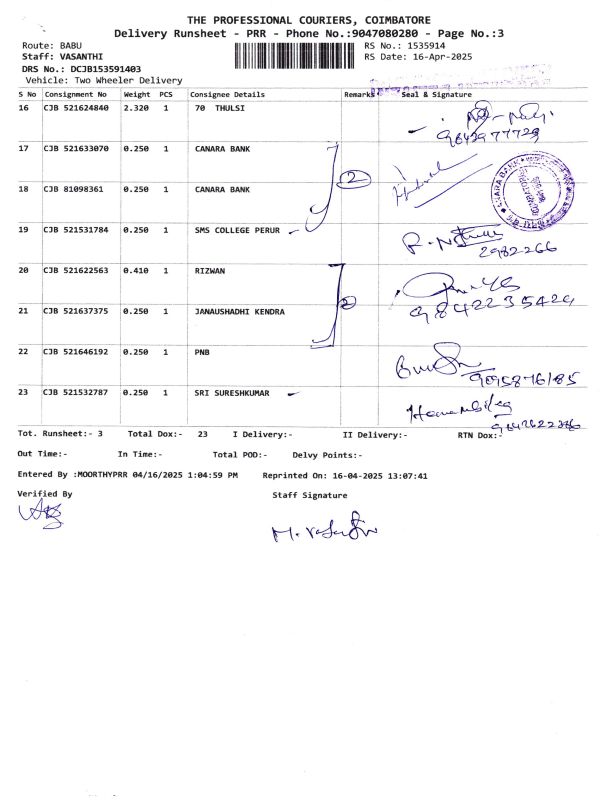 THE PROFESSIONAL COURIERS, COIMBATORE
Delivery Runsheet - PRR - Phone No.:9047080280 - Page No.:3
Route: BABU RS No.: 1535914
Staff: VASANTHI RS Date: 16-Apr-2025
DRS No.: DCJB153591403
Vehicle: Two Wheeler Delivery
S No Consignment No Weight PCS Consignee Details Remarks Seal & Signature
16 CJB 521624840 2.320 1 70 THULSI
9642977729
17 CJB 521633070 0.250 1 CANARA BANK
2
CANARA BANK
18 CJB 81098361 0.250 1 CANARA BANK
19 CJB 521531784 0.250 1 SMS COLLEGE PERUR
2982266
20 CJB 521622563 0.410 1 RIZWAN
2
9842235424
21 CJB 521637375 0.250 1 JANAUSHADHI KENDRA
22 CJB 521646192 0.250 1 PNB
23 CJB 521532787 0.250 1 SRI SURESHKUMAR
Tot. Runsheet:- 3 Total Dox:- 23 I Delivery:- II Delivery:- RTN Dox:-
Out Time:- In Time:- Total POD:- Delvy Points:-
Entered By :MOORTHYPRR 04/16/2025 1:04:59 PM Reprinted On: 16-04-2025 13:07:41
Verified By Staff Signature